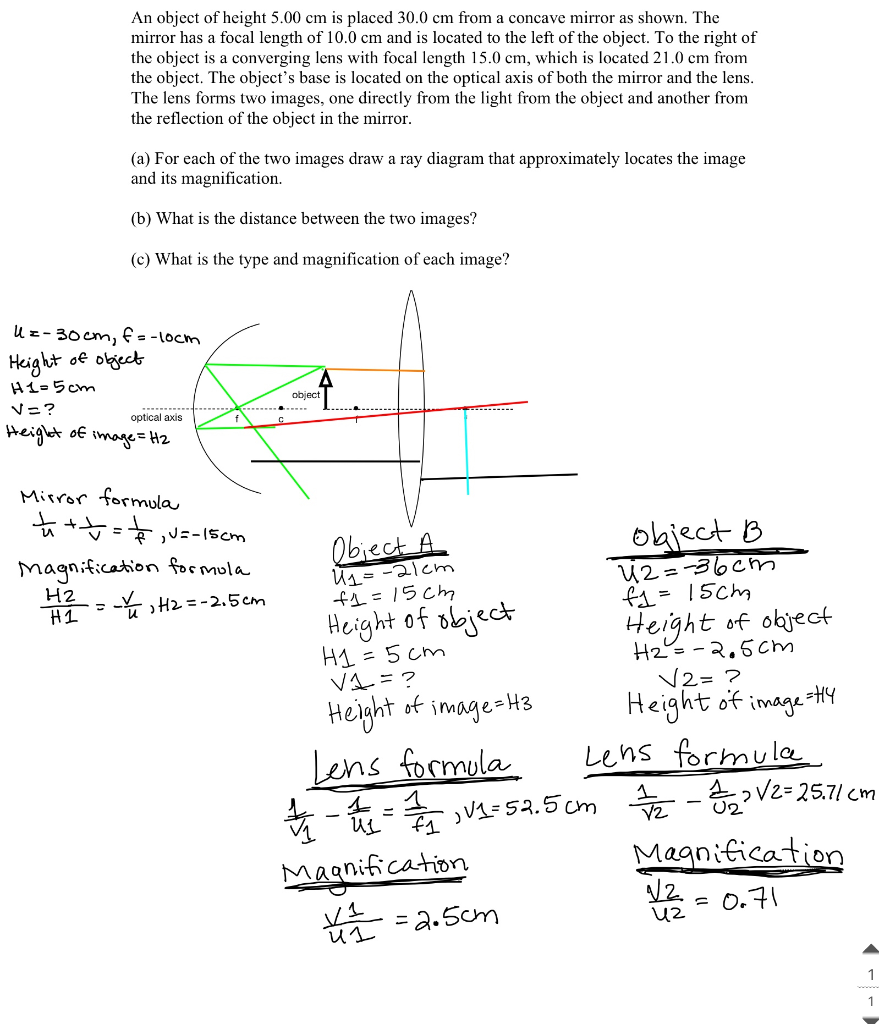 An object of height 5.00 cm is placed 30.0 cm from a concave mirror as shown. The
mirror has a focal length of 10.0 cm and is located to the left of the object. To the right of
the object is a converging lens with focal length 15.0 cm, which is located 21.0 cm from
the object. The object’s base is located on the optical axis of both the mirror and the lens.
The lens forms two images, one directly from the light from the object and another from
the reflection of the object in the mirror.
(a) For each of the two images draw a ray diagram that approximately locates the image
and its magnification.
(b) What is the distance between the two images?
(c) What is the type and magnification of each image?
u = -30cm, f = -10cm
Height of object
H1 = 5cm
V = ?
Height of image = H2
optical axis
f
c
object
f
Mirror formula
1/u + 1/v = 1/f , υ = -15cm
Magnification formula
H2/H1 = -v/u , H2 = -2.5cm
Object A
u1 = -21cm
f1 = 15cm
Height of object
H1 = 5cm
V1 = ?
Height of image = H3
Lens formula
1/V1 - 1/u1 = 1/f1 , V1 = 52.5cm
Magnification
V1/u1 = 2.5cm
Object B
u2 = -36cm
f1 = 15cm
Height of object
H2 = -2.5cm
V2 = ?
Height of image = H4
Lens formula
1/V2 - 1/U2 , V2 = 25.71cm
Magnification
V2/u2 = 0.71
1
1